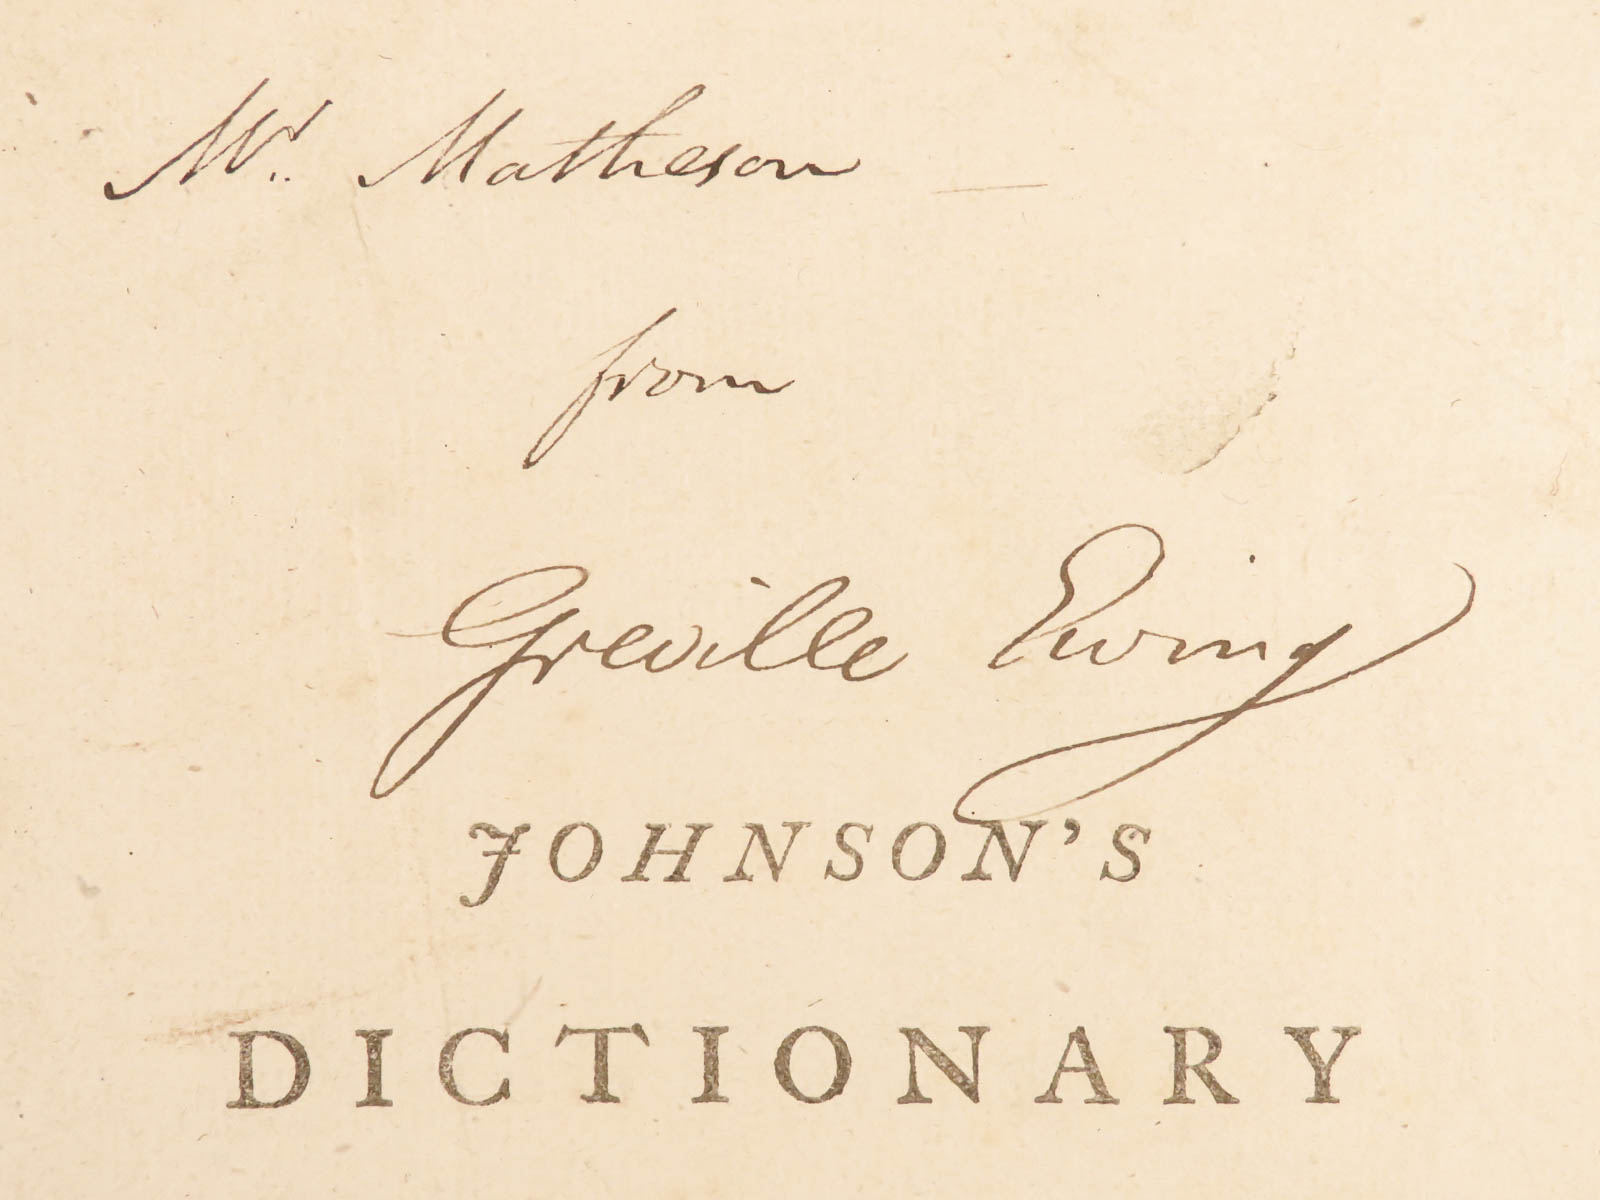 Mr. Matheson
from
Greville Ewing
JOHNSON'S
DICTIONARY